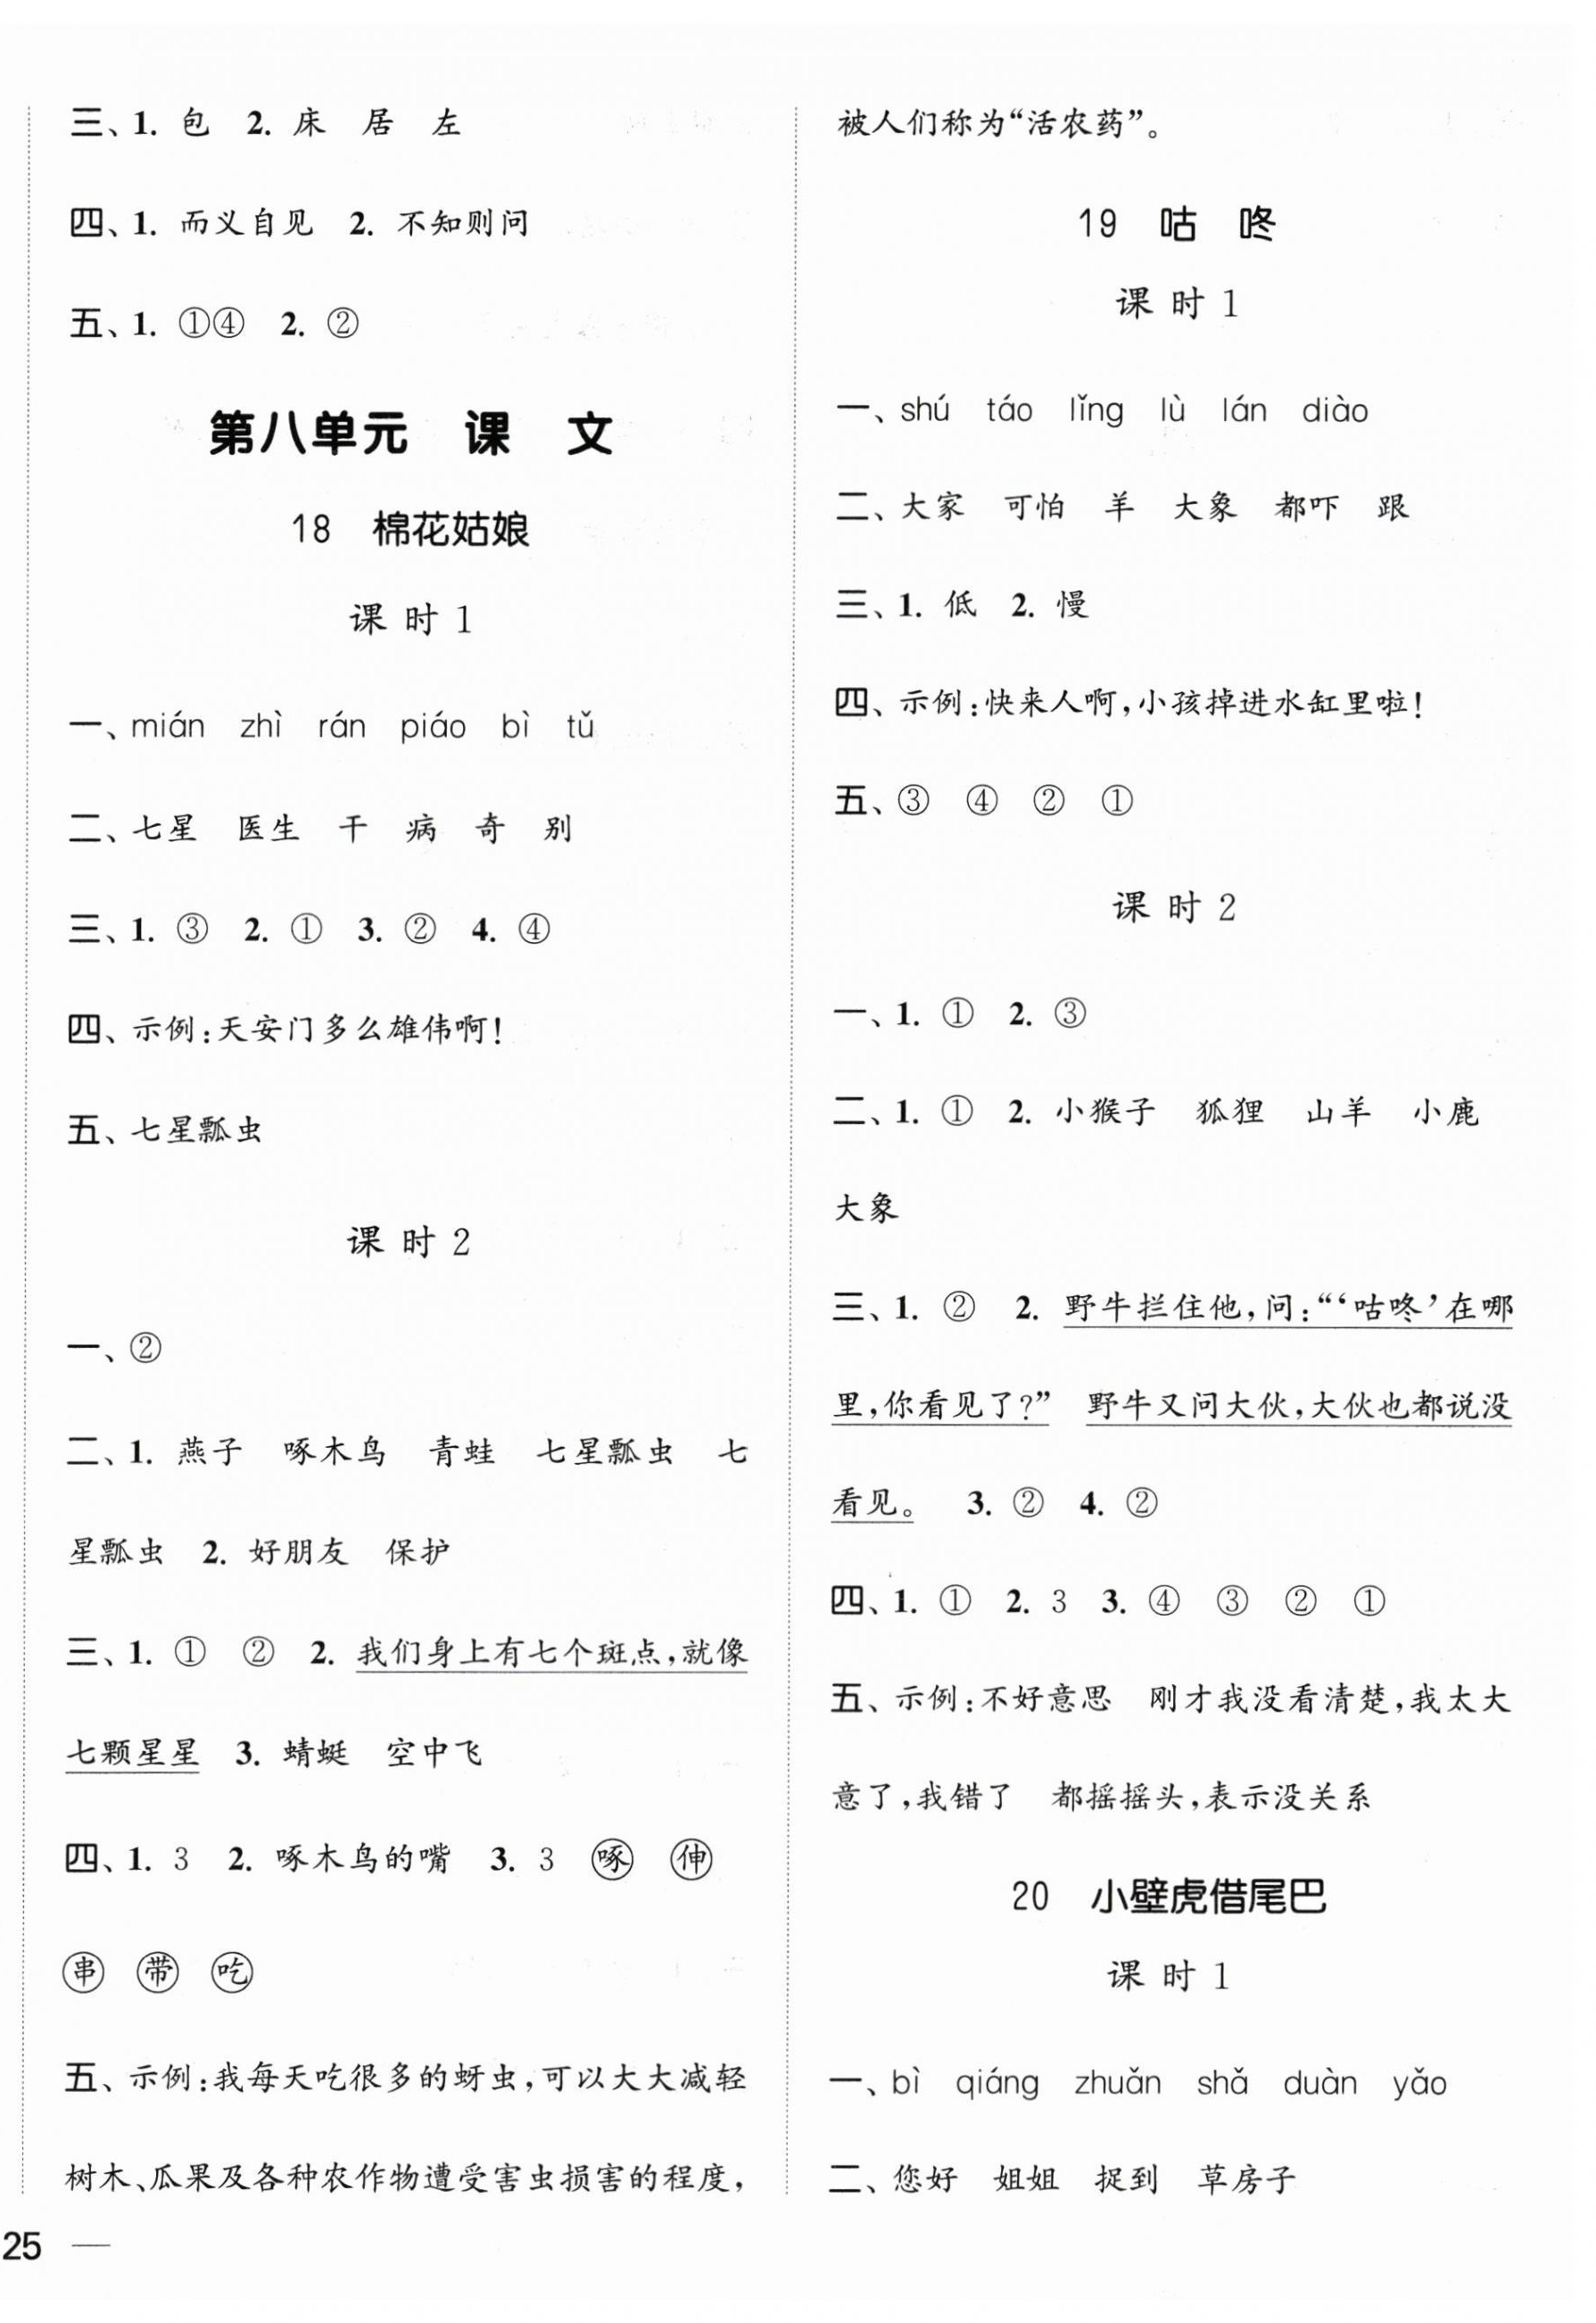 三、1. 包 2. 床 居 左
四、1. 而义自见 2. 不知则问
五、1. ①④ 2. ②
第八单元 课 文
18 棉花姑娘
课 时 1
一、mián zhì rán piáo bì tǔ
二、七星 医生 干 病 奇 别
三、1. ③ 2. ① 3. ② 4. ④
四、示例:天安门多么雄伟啊!
五、七星瓢虫
课 时 2
一、②
二、1. 燕子 啄木鸟 青蛙 七星瓢虫 七
星瓢虫 2. 好朋友 保护
三、1. ① ② 2. 我们身上有七个斑点,就像
七颗星星 3. 蜻蜓 空中飞
四、1. 3 2. 啄木鸟的嘴 3. 3 啄 伸
串 带 吃
五、示例:我每天吃很多的蚜虫,可以大大减轻
树木、瓜果及各种农作物遭受害虫损害的程度,
25 —
被人们称为“活农药”。
19 咕 咚
课 时 1
一、shú táo lǐng lù lán diào
二、大家 可怕 羊 大象 都吓 跟
三、1. 低 2. 慢
四、示例:快来人啊,小孩掉进水缸里啦!
五、③ ④ ② ①
课 时 2
一、1. ① 2. ③
二、1. ① 2. 小猴子 狐狸 山羊 小鹿
大象
三、1. ② 2. 野牛拦住他,问:“‘咕咚’在哪
里,你看见了?” 野牛又问大伙,大伙也都说没
看见。 3. ② 4. ②
四、1. ① 2. 3 3. ④ ③ ② ①
五、示例:不好意思 刚才我没看清楚,我太大
意了,我错了 都摇摇头,表示没关系
20 小壁虎借尾巴
课 时 1
一、bì qiáng zhuǎn shǎ duàn yǎo
二、您好 姐姐 捉到 草房子